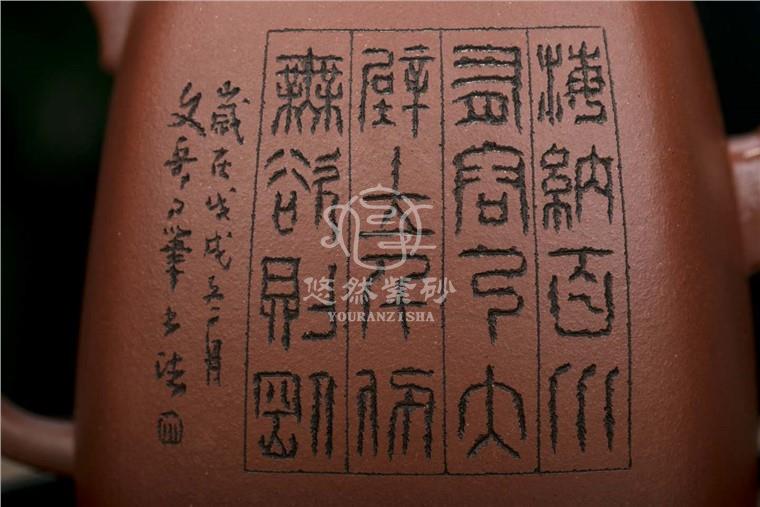 海納百川
有容乃大
壁立千仞
無欲則剛
歲在戊戌月
文
悠然紫砂
YOURANZISHA